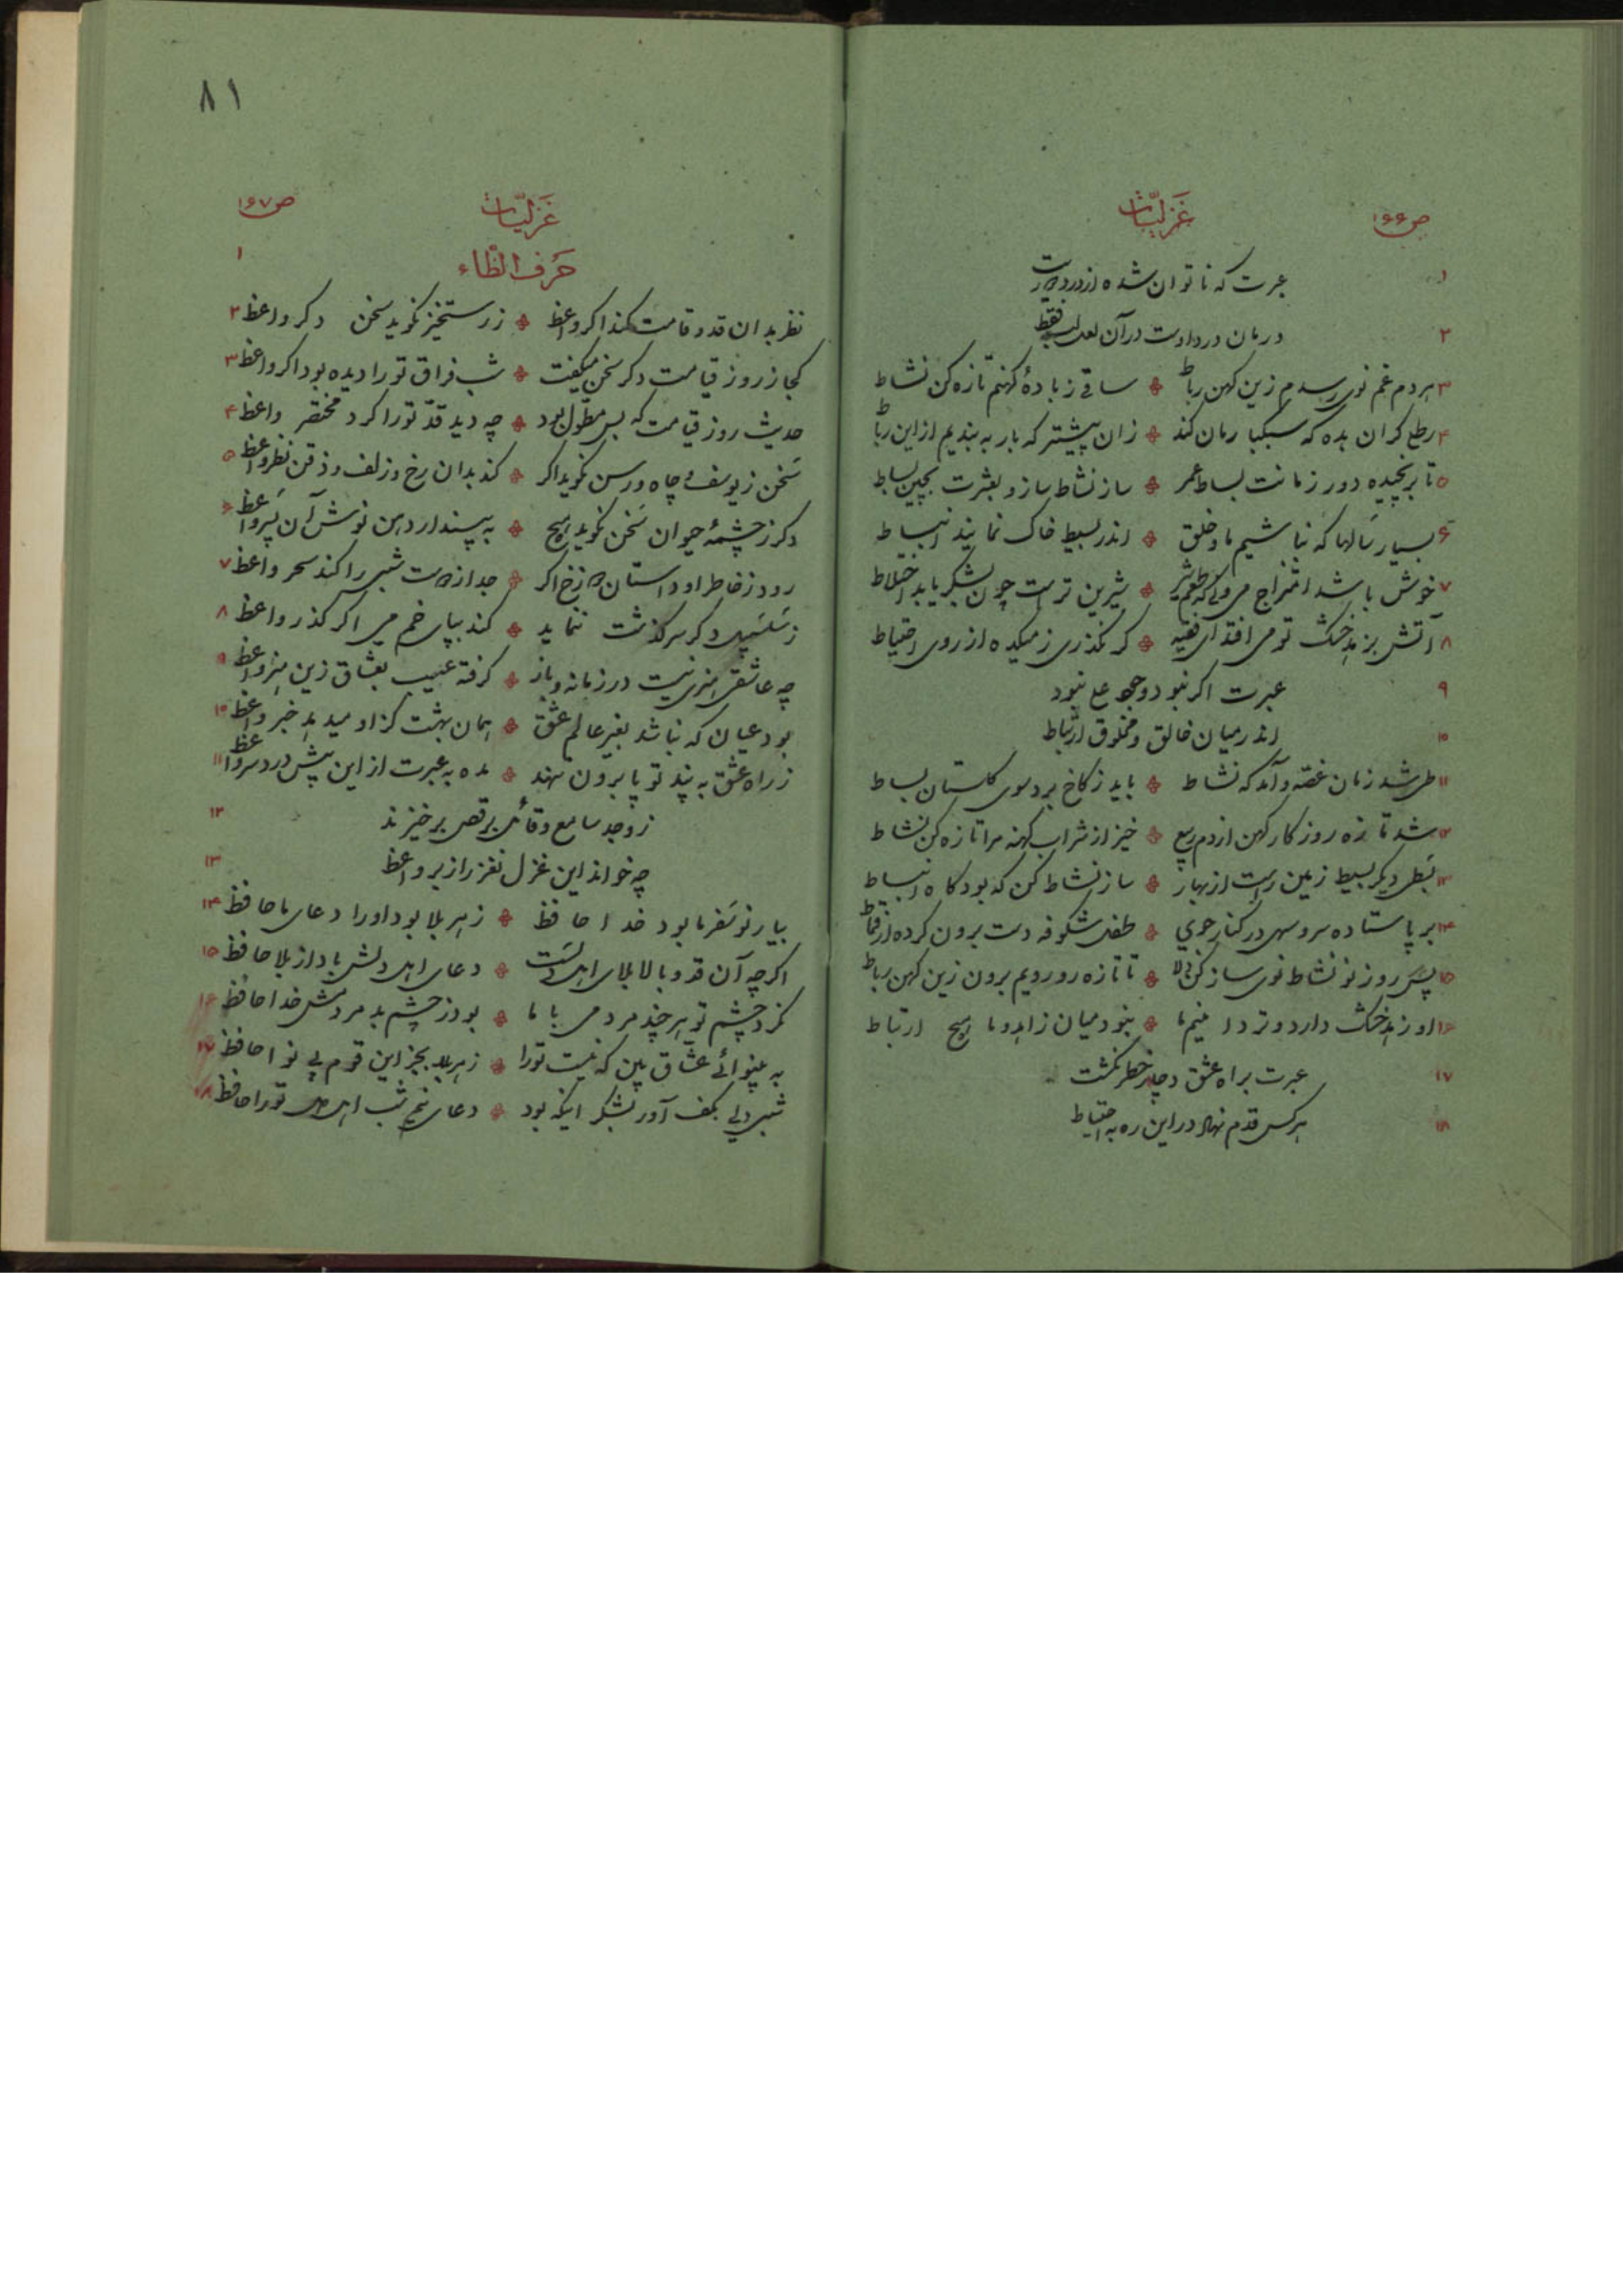 ص۱۶۶
غَزلیّات
۱ عبرت که ناتوان شده از درد
۲ درمان درد اوست در آن لعل لب فقط
۳ هردم غم نوی رسدم زین کهن رباط ساقی ز بادهٔ کهنم تازه کن نشاط
۴ رطل کران بده که سبکبارمان کند زان پیشتر که بار به بندیم از این رباط
۵ تا برنچیده دور زمانت بساط عمر ساز نشاط ساز و بعشرت بچین بساط
۶ بسیار سَالها که نباشیم ما و خلق اندر بسیط خاک نمایند انبساط
۷ خوش باشد امتزاج می ولی شیرین ترست چون بشکر یابد اختلاط
۸ آتش بزهد خشک تو می افتد ای فقیه کر نکذری ز میکده از روی احتیاط
۹ عبرت اکر نبود وجود علی نبود
۱۰ اندر میان خالق و مخلوق ارتباط
۱۱ طی شد زمان غصّه و آمد که نشاط باید ز کاخ برد سوی کلستان بساط
۱۲ شد تازه روزکار کهن از دم ربیع خیز از شراب کهنه مرا تازه کن نشاط
۱۳ بَسطی دیکر بسیط زمین راست از بهار ساز نشاط کن که بود کاه انبساط
۱۴ بر پا ستاده سرو سهی در کنار جوی طفل شکوفه دست برون کرده از قماط
۱۵ پسَ روز نو نشاط نوی ساز کن دلا تا تازه رو رویم برون زین کهن رباط
۱۶ او زهد خشک دارد و تردامنیم ما نبود میان زاهد و ما هیچ ارتباط
۱۷ عبرت براه عشق دچار خطر نکشت
۱۸ هر کس قدم نهاد در این ره به احتیاط
۸۱
ص۱۶۷
غَزلیّات
۱ حَرف الظّاء
نظر بدان قد و قامت کند اکر واعظ ز رستخیز نکوید سخن دکر واعظ ۲
کجا ز روز قیامت دکر سخن میکفت شب فراق تو را دیده بود اکر واعظ ۳
حدیث روز قیامت که بس مطّول بود چه دید قدّ تو را کرد مختصر واعظ ۴
سَخن ز یوسف و چاه و رسن نکوید اکر کند بدان رخ و زلف و ذقن نظر واعظ ۵
دکر ز چشمهٔ حیوان سَخن نکوید هیچ به بیند ار دهن نوش آن پسَر واعظ ۶
رود ز خاطر او داستان دوزخ اکر جدا ز دوست شبی را کند سحر واعظ ۷
ز سَلسَبیل دکر سرکذشت ننماید کند بپای خم می اکر کذر واعظ ۸
چه عاشقی هنری نیست در زمانه و باز کرفته عیب بعشاق زین هنر واعظ ۹
بود عیان که نباشد بغیر عالم عشق همان بهشت کز او میدهد خبر واعظ ۱۰
ز راه عشق به پند تو پا برون ننهد مده به عبرت از این پیش دردسر واعظ ۱۱
ز وجد سامع و قائل برقص برخیزند ۱۲
چه خواند این غزل نغز را ز بر واعظ ۱۳
بیار نوسَفر ما بود خدا حافظ ز هر بلا بود او را دعای ما حافظ ۱۴
اکرچه آن قد و بالا بلای اهل دلسَت دعای اهل دلش باد از بلا حافظ ۱۵
نکرد چشم تو هر چند مردمی با ما بود ز چشم بد مردمش خدا حافظ ۱۶
به بینوائی عشّاق بین که نیست تو را ز هر بلا بجز این قوم بی نوا حافظ ۱۷
شبی دلی بکف آور بشکر اینکه بود دعای نیم شب اهل دل تو را حافظ ۱۸